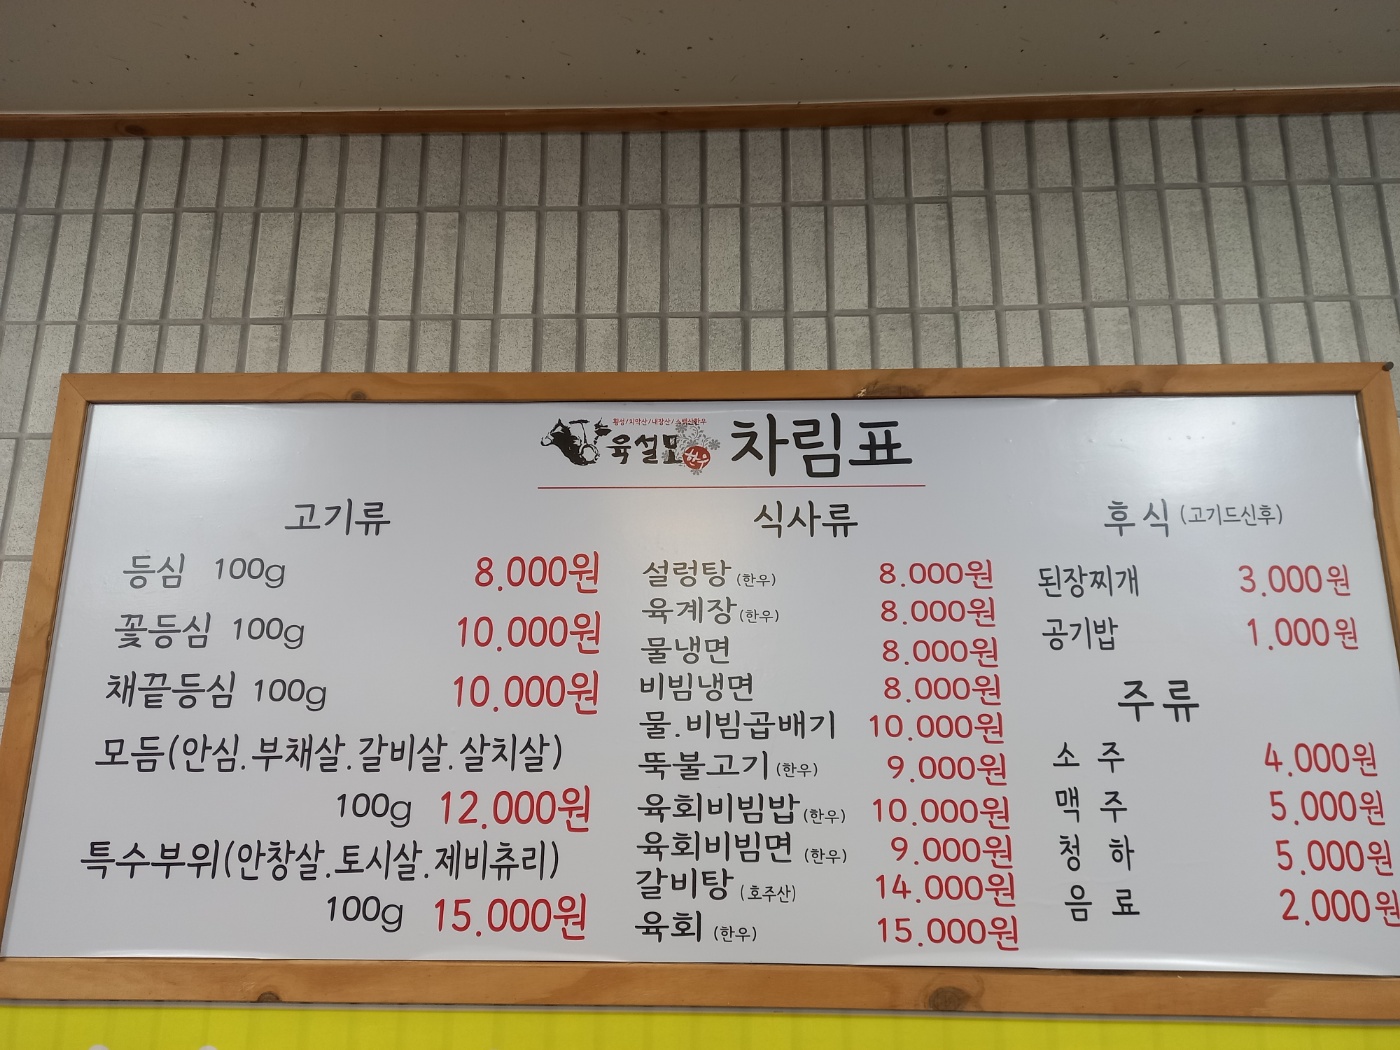 횡성/치악산/내장산/소백산한우
육설모 한우 차림표
고기류
등심 100g 8.000원
꽃등심 100g 10.000원
채끝등심 100g 10.000원
모듬(안심.부채살.갈비살.살치살)
100g 12.000원
특수부위(안창살.토시살.제비츄리)
100g 15.000원
식사류
설렁탕(한우) 8.000원
육계장(한우) 8.000원
물냉면 8.000원
비빔냉면 8.000원
물.비빔곱배기 10.000원
뚝불고기(한우) 9.000원
육회비빔밥(한우) 10.000원
육회비빔면 (한우) 9.000원
갈비탕 (호주산) 14.000원
육회 (한우) 15.000원
후식(고기드신후)
된장찌개 3.000원
공기밥 1.000원
주류
소 주 4.000원
맥 주 5.000원
청 하 5.000원
음 료 2.000원